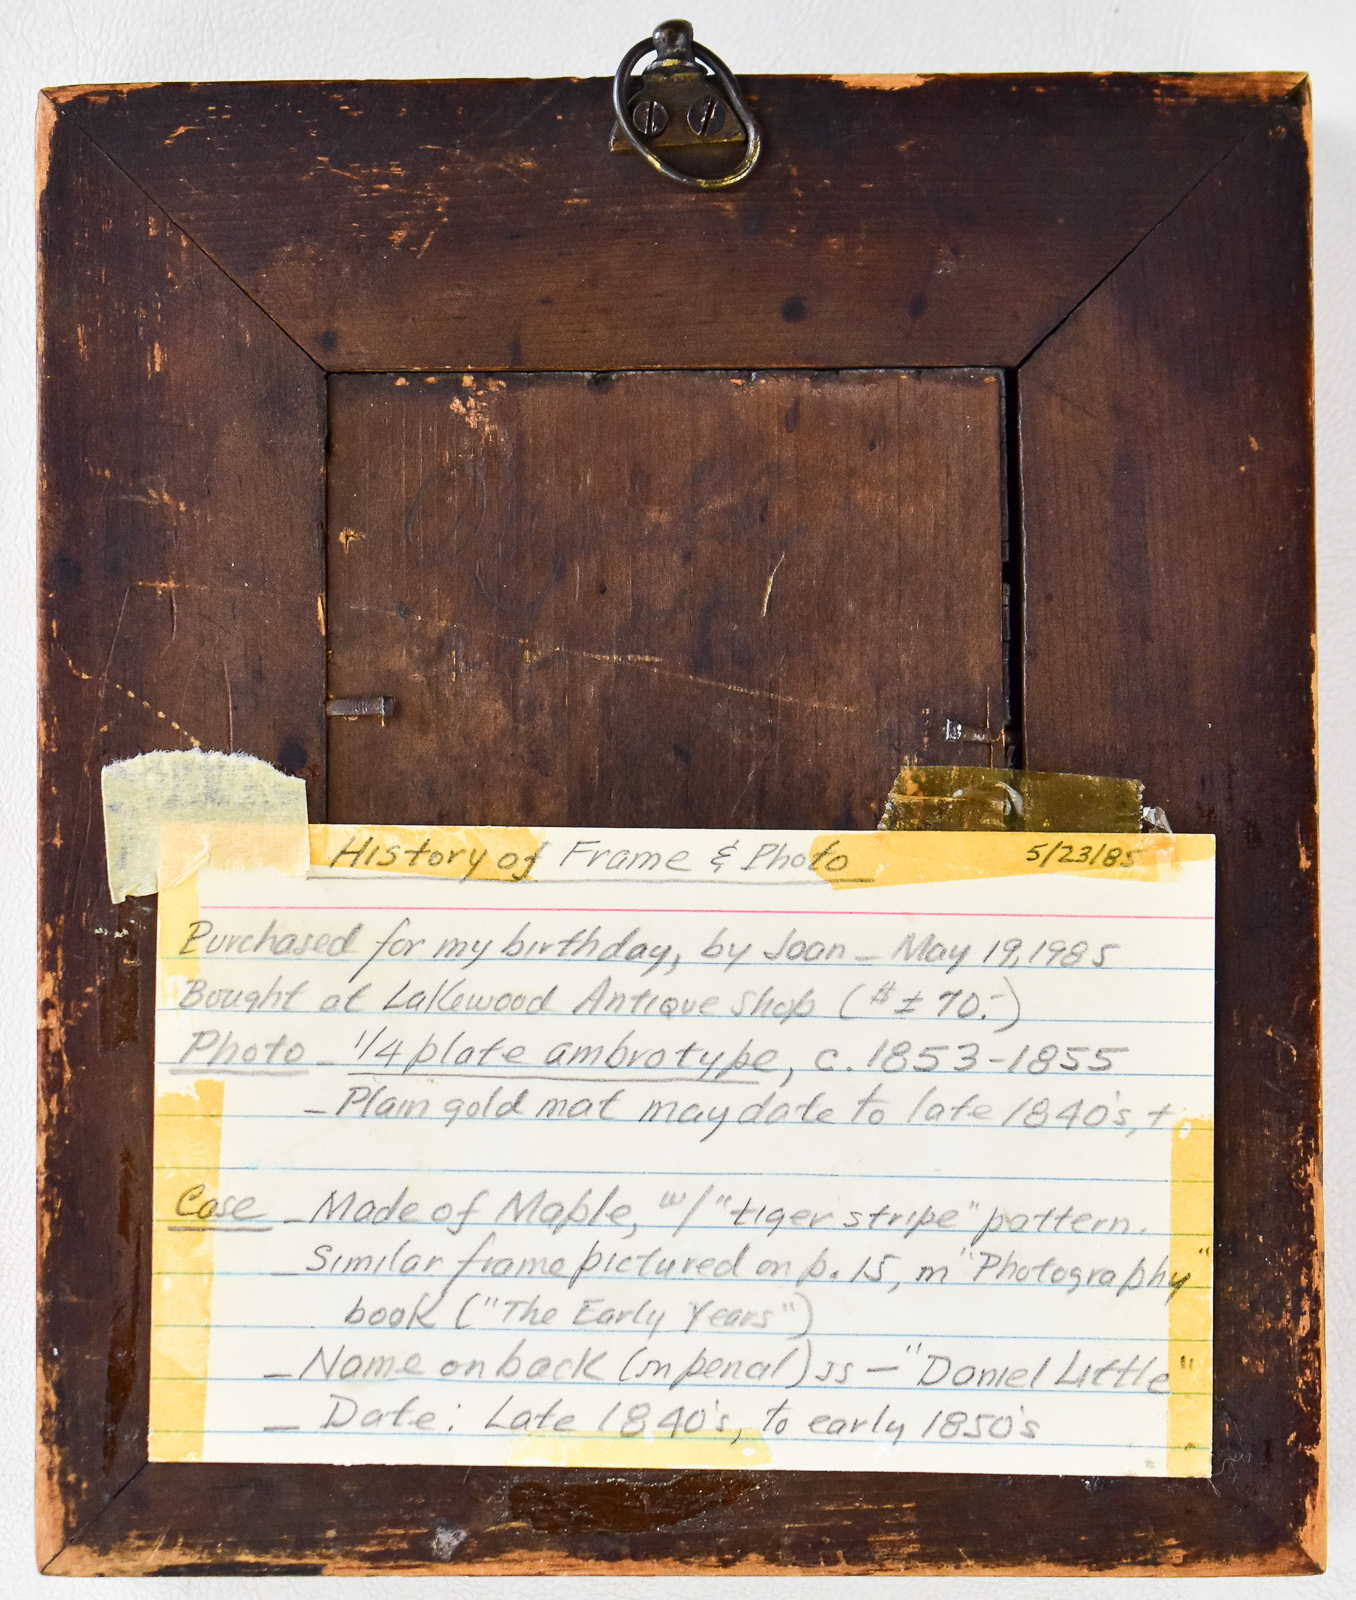 History of Frame & Photo 5/23/85
Purchased for my birthday, by Joan - May 19, 1985
Bought at Lakewood Antique Shop ($ ± 70.-)
Photo - 1/4 plate ambrotype, c. 1853-1855
- Plain gold mat may date to late 1840's, +
Case - Made of Maple, w/ "tiger stripe" pattern.
- Similar frame pictured on p. 15, in "Photography"
book ("The Early Years")
- Name on back (in pencil) is - "Daniel Little"
- Date: Late 1840's, to early 1850's